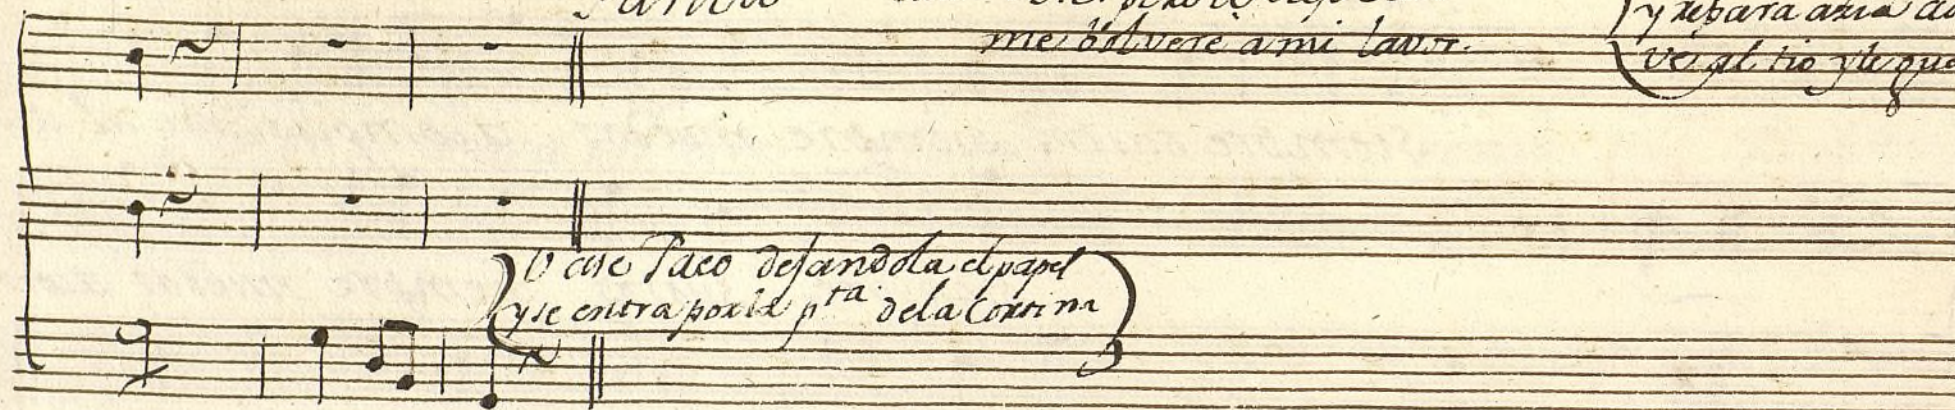 me bolveré a mi lavor.
y repara azia
ve al tio y le
Vase Paco dejandola el papel
y se entra por la pta. de la Cortina